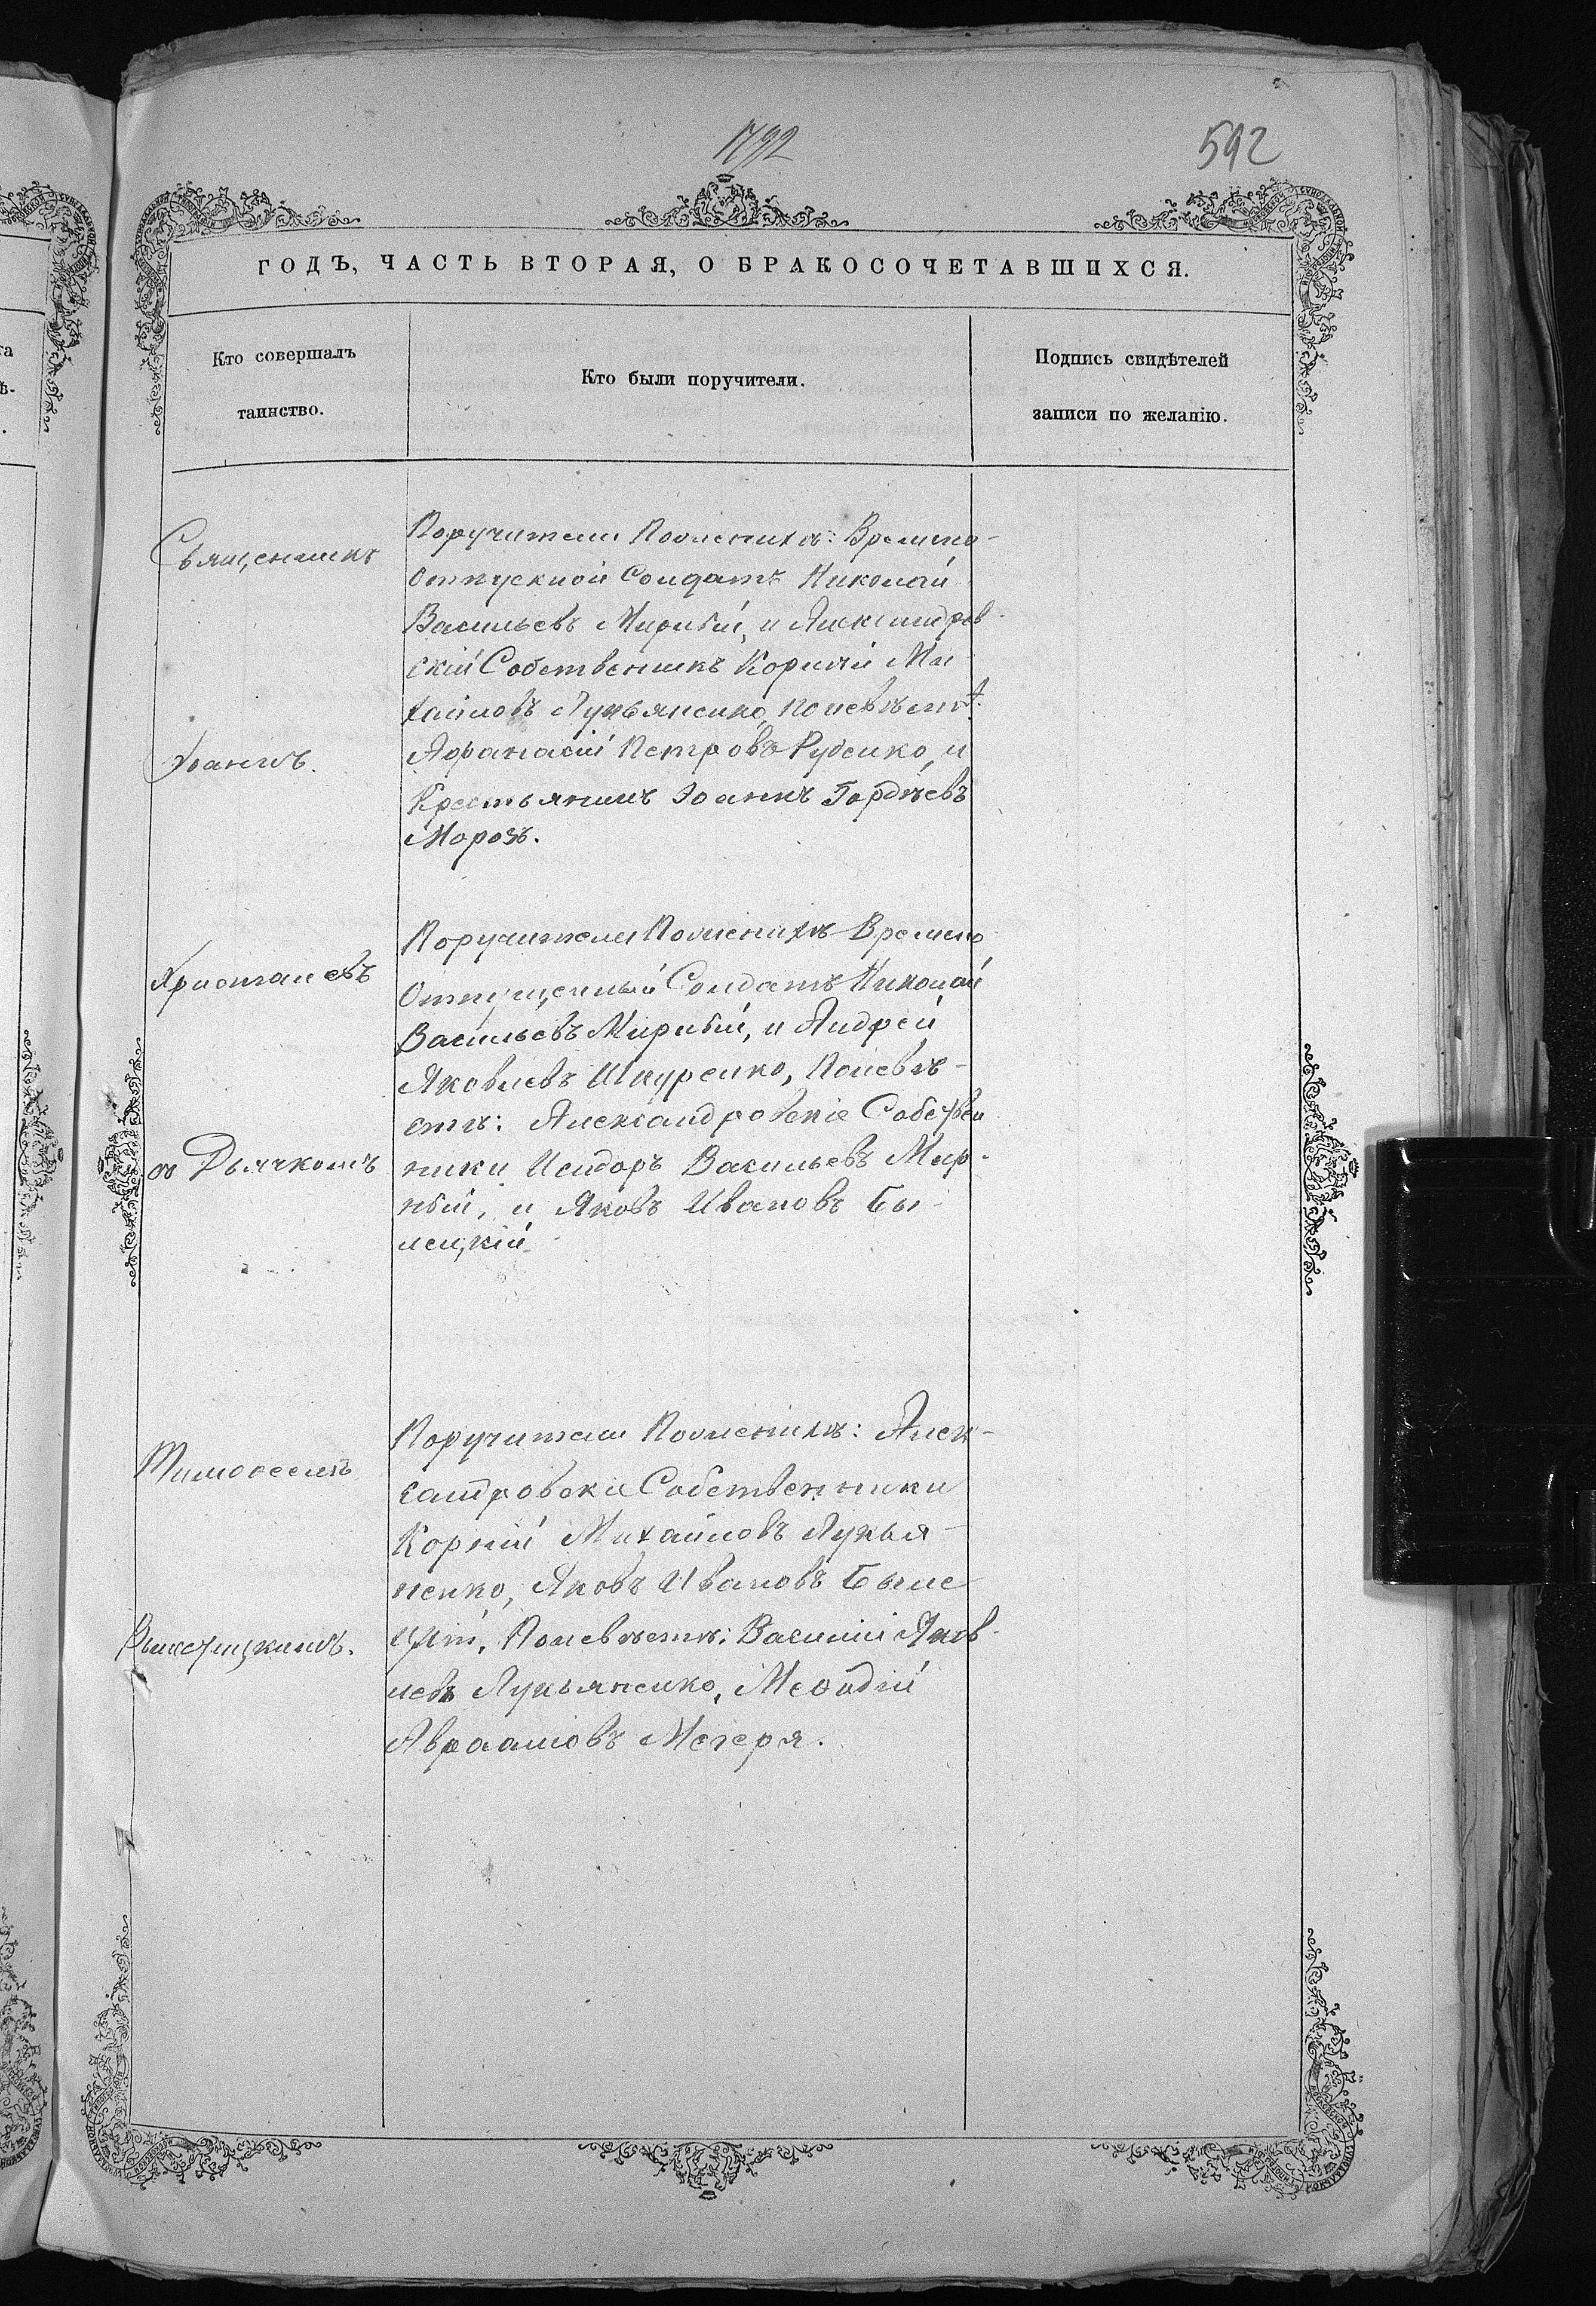 592
ГОДЪ, ЧАСТЬ ВТОРАЯ, О БРАКОСОЧЕТАВШИХСЯ.
Кто совершалъ
таинство.
Кто были поручители.
Подпись свидѣтелей
записи по желанію.
Священникъ
Іоаннъ.
Христане въ
съ Дьячкомъ
Тимоѳеемъ
Поручители По женихѣ: Времено-
отпускной Солдатъ Николай
Васильевъ Мирный, и Александров-
скій Собственникъ Корній Ми
хайловъ Лукьяненко, По невѣстѣ.
Аѳанасій Петровъ Руденко, и
Крестьянинъ Іоаннъ Гордѣевъ
Морозъ.
Поручители По женихѣ Времено
Отпущенный Солдатъ Николай
Васильевъ Мирный, и Андрей
Яковлевъ Шкуренко, По невѣ-
стѣ: Александровскіе Собствен
ники Исидоръ Васильевъ Мир-
ный, и Яковъ Ивановъ Бы-
лецкій
Поручители По женихѣ: Алек-
сандровскіе Собственники
Корній Михайловъ Лукья-
ненко, Яковъ Ивановъ Быле
цкій, По невѣстѣ: Василій Яков-
левъ Лукьяненко, Меѳодій
Авраамовъ Мегеря.